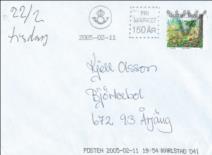 22/2
tisdag
FRI
MÄRKET
150 ÅR
2005-02-11
Kjell Olsson
Björkebol
672 93 Årjäng
POSTEN 2005-02-11 19:54 KARLSTAD D41